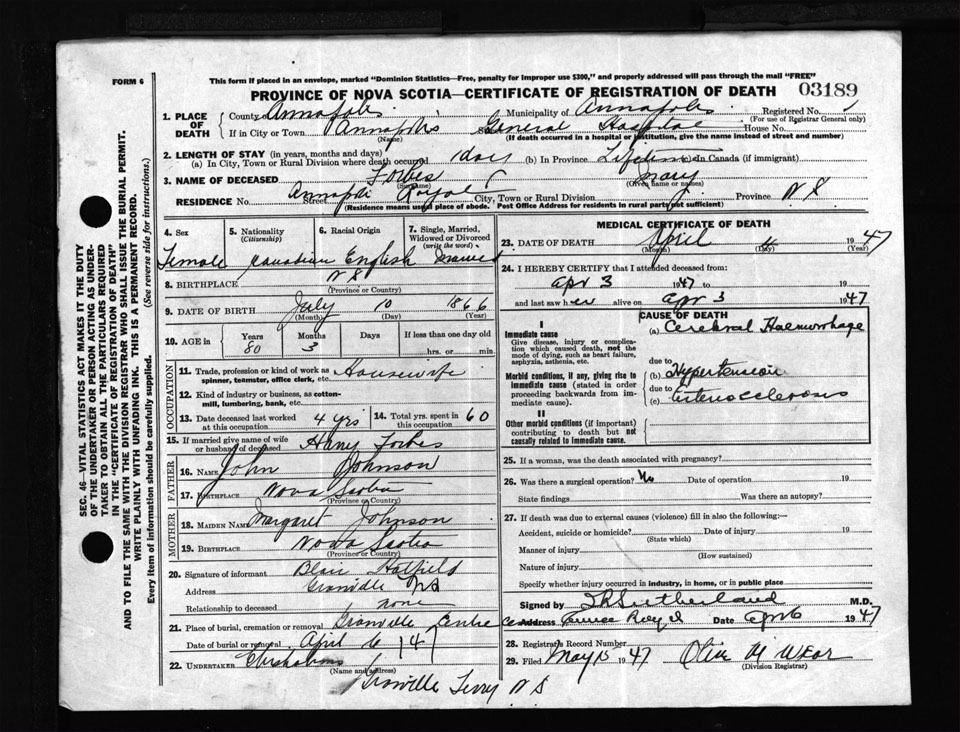 FORM 6
This form if placed in an envelope, marked "Dominion Statistics—Free, penalty for improper use $300," and properly addressed will pass through the mail "FREE"
PROVINCE OF NOVA SCOTIA—CERTIFICATE OF REGISTRATION OF DEATH 03189
1. PLACE OF DEATH
County of Annapolis Municipality of Annapolis Registered No.
(For use of Registrar General only)
If in City or Town Annapolis General Hospital House No.
(Name) (If death occurred in a hospital or institution, give the name instead of street and number)
2. LENGTH OF STAY (in years, months and days)
(a) In City, Town or Rural Division where death occurred 1 day (b) In Province Lifetime (c) In Canada (if immigrant)
3. NAME OF DECEASED Forbes Mary J.
(Surname) (Given name or names)
RESIDENCE No. Street Annapolis Royal City, Town or Rural Division Province N S
(Residence means usual place of abode. Post Office Address for residents in rural parts not sufficient)
4. Sex Female
5. Nationality (Citizenship) Canadian
6. Racial Origin English
7. Single, Married, Widowed or Divorced (write the word)
8. BIRTHPLACE N S
(Province or Country)
9. DATE OF BIRTH July 10 1866
(Month) (Day) (Year)
10. AGE in Years Months Days If less than one day old
80 3 hrs. or min.
OCCUPATION
11. Trade, profession or kind of work as spinner, teamster, office clerk, etc. Housewife
12. Kind of industry or business, as cotton-mill, lumbering, bank, etc.
13. Date deceased last worked at this occupation 4 yrs
14. Total yrs. spent in this occupation 60
15. If married give name of wife or husband of deceased Harry Forbes
FATHER
16. NAME John Johnson
17. BIRTHPLACE Nova Scotia
(Province or Country)
MOTHER
18. MAIDEN NAME Margaret Johnson
19. BIRTHPLACE Nova Scotia
(Province or Country)
20. Signature of informant Blair Hatfield
Address Granville N S
Relationship to deceased none
21. Place of burial, cremation or removal Granville Centre
Date of burial or removal April 6 1947
22. UNDERTAKER
(Name and address)
Granville Ferry N S
MEDICAL CERTIFICATE OF DEATH
23. DATE OF DEATH April 4 1947
(Month) (Day) (Year)
24. I HEREBY CERTIFY that I attended deceased from:
Apr 3 1947 to 19
and last saw her alive on Apr 3 1947
CAUSE OF DEATH
I
Immediate cause
Give disease, injury or complication which caused death, not the mode of dying, such as heart failure, asphyxia, asthenia, etc.
(a) Cerebral Haemorrhage
due to
Morbid conditions, if any, giving rise to immediate cause (stated in order proceeding backwards from immediate cause).
(b) Hypertension
due to
(c) Arteriosclerosis
II
Other morbid conditions (if important) contributing to death but not causally related to immediate cause.
25. If a woman, was the death associated with pregnancy?
26. Was there a surgical operation? No Date of operation 19
State findings Was there an autopsy?
27. If death was due to external causes (violence) fill in also the following:—
Accident, suicide or homicide? Date of injury 19
(State which)
Manner of injury
(How sustained)
Nature of injury
Specify whether injury occurred in industry, in home, or in public place
Signed by Sutherland M.D.
Address Annapolis Royal Date Apr 6 1947
28. Registrar's Record Number
29. Filed May 15 1947
(Division Registrar)
SEC. 46—VITAL STATISTICS ACT MAKES IT THE DUTY
OF THE UNDERTAKER OR PERSON ACTING AS UNDER-
TAKER TO OBTAIN ALL THE PARTICULARS REQUIRED
IN THE "CERTIFICATE OF REGISTRATION OF DEATH"
AND TO FILE THE SAME WITH THE DIVISION REGISTRAR WHO SHALL ISSUE THE BURIAL PERMIT.
WRITE PLAINLY WITH UNFADING INK. THIS IS A PERMANENT RECORD.
Every item of information should be carefully supplied. (See reverse side for instructions.)